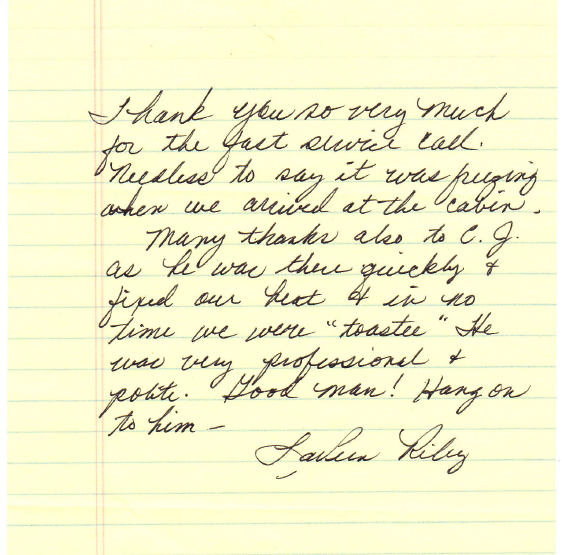 Thank you so very much
for the fast service call.
Needless to say it was freezing
when we arrived at the cabin.
Many thanks also to C. J.
as he was there quickly &
fixed our heat & in no
time we were "toastee" He
was very professional &
polite. Good man! Hang on
to him –
Riley